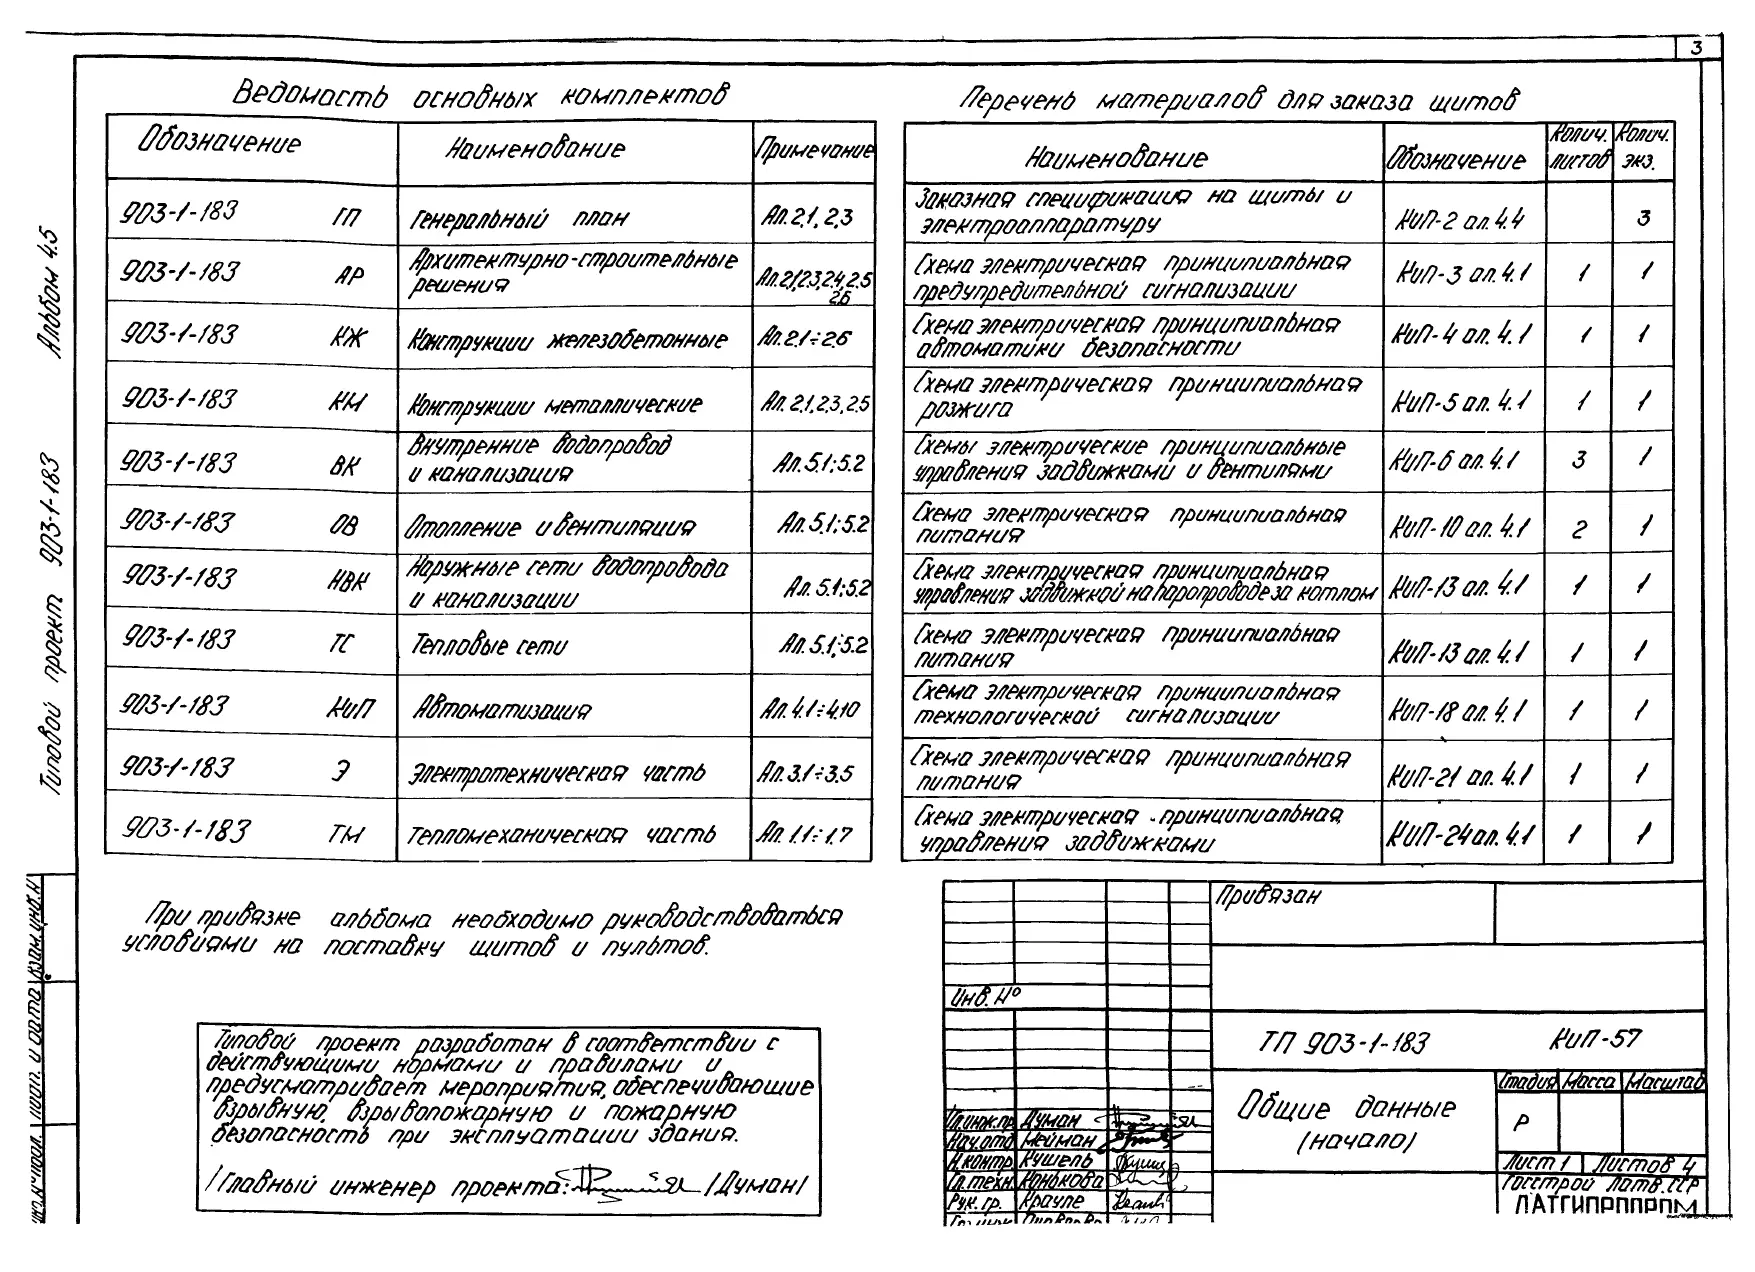 3
Альбом 4.5
Типовой проект 903-1-183
Ведомость основных комплектов
Обозначение Наименование Примечание
903-1-183 ГП Генеральный план Ал. 2.1, 2.3
903-1-183 АР Архитектурно-строительные решения Ал. 2.1, 2.3, 2.4, 2.5 2.6
903-1-183 КЖ Конструкции железобетонные Ал. 2.1÷2.6
903-1-183 КМ Конструкции металлические Ал. 2.1, 2.3, 2.5
903-1-183 ВК Внутренние водопровод и канализация Ал. 5.1; 5.2
903-1-183 ОВ Отопление и вентиляция Ал. 5.1; 5.2
903-1-183 НВК Наружные сети водопровода и канализации Ал. 5.1; 5.2
903-1-183 ТС Тепловые сети Ал. 5.1; 5.2
903-1-183 КиП Автоматизация Ал. 4.1÷4.10
903-1-183 Э Электротехническая часть Ал. 3.1÷3.5
903-1-183 ТМ Тепломеханическая часть Ал. 1.1÷1.7
При привязке альбома необходимо руководствоваться
условиями на поставку щитов и пультов.
Типовой проект разработан в соответствии с
действующими нормами и правилами и
предусматривает мероприятия, обеспечивающие
взрывную, взрывопожарную и пожарную
безопасность при эксплуатации здания.
/Главный инженер проекта: /Думан/
Перечень материалов для заказа щитов
Наименование Обозначение Колич. листов Колич. экз.
Заказная спецификация на щиты и электроаппаратуру КиП-2 ал. 4.4 3
Схема электрическая принципиальная предупредительной сигнализации КиП-3 ал. 4.1 1 1
Схема электрическая принципиальная автоматики безопасности КиП-4 ал. 4.1 1 1
Схема электрическая принципиальная розжига КиП-5 ал. 4.1 1 1
Схемы электрические принципиальные управления задвижками и вентилями КиП-6 ал. 4.1 3 1
Схема электрическая принципиальная питания КиП-10 ал. 4.1 2 1
Схема электрическая принципиальная управления задвижкой на паропроводе за котлом КиП-13 ал. 4.1 1 1
Схема электрическая принципиальная питания КиП-13 ал. 4.1 1 1
Схема электрическая принципиальная технологической сигнализации КиП-18 ал. 4.1 1 1
Схема электрическая принципиальная питания КиП-21 ал. 4.1 1 1
Схема электрическая принципиальная управления задвижками КИП-24 ал. 4.1 1 1
Привязан
Инв. №
ТП 903-1-183 КиП-57
Общие данные
(начало)
Стадия Масса Масштаб
Р
Лист 1 Листов 4
Госстрой Латв. ССР
ЛАТГИПРОПРОМ
Гл.инж.пр Думан
Нач.отд Мейман
Н.контр. Кушель
Гл.техн. Конькова
Рук. гр. Крауле
подп. и дата Взам.инв.№